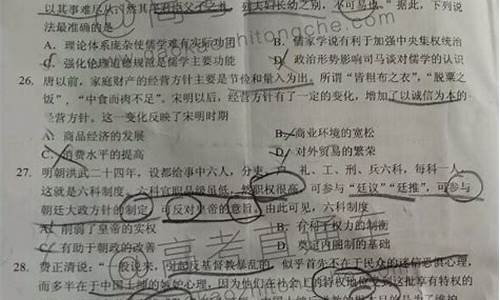 法最准确的是
A. 理论体系庞杂使儒学难有实际功用
B. 儒家学说有利于加强中央集权统治
C. 强化伦理道德规范是儒学主要功能
D. 政治形势影响司马谈对儒学的认识
26. 唐以前，家庭财产的经营方针主要是节俭和量入为出。所谓“皆粗布之衣”，“脱粟之
饭”，“中食而肉不足”。宋明以后，经营方针有了一定的变化，增加了以诚信为本的
经营方针。这一变化反映了宋明时期
A. 商品经济的发展
B. 商业环境的宽松
C. 消费水平的提高
D. 对外贸易的繁荣
27. 明朝洪武二十四年，设都给事中六人，分吏、户、礼、工、刑、兵六科，每科一人，
这就是六科制度。六科官职品级虽低，然职权很高，可参与“廷议”“廷推”，可参与
朝廷大政方针的制定，可反对皇帝的意旨。由此可见，六科制度
A. 削弱了皇帝的实权
B. 有利于权力的制衡
C. 有助于朝政的改善
D. 奠定内阁制的基础
28. 费正清说：“一般说来，对起反基督教暴乱的，似乎首先不在于民众的迷信恐惧心理，
而多半在于中国士绅的嫉妒心理，因为他们在社会上的特权地位受到这批享有特权的